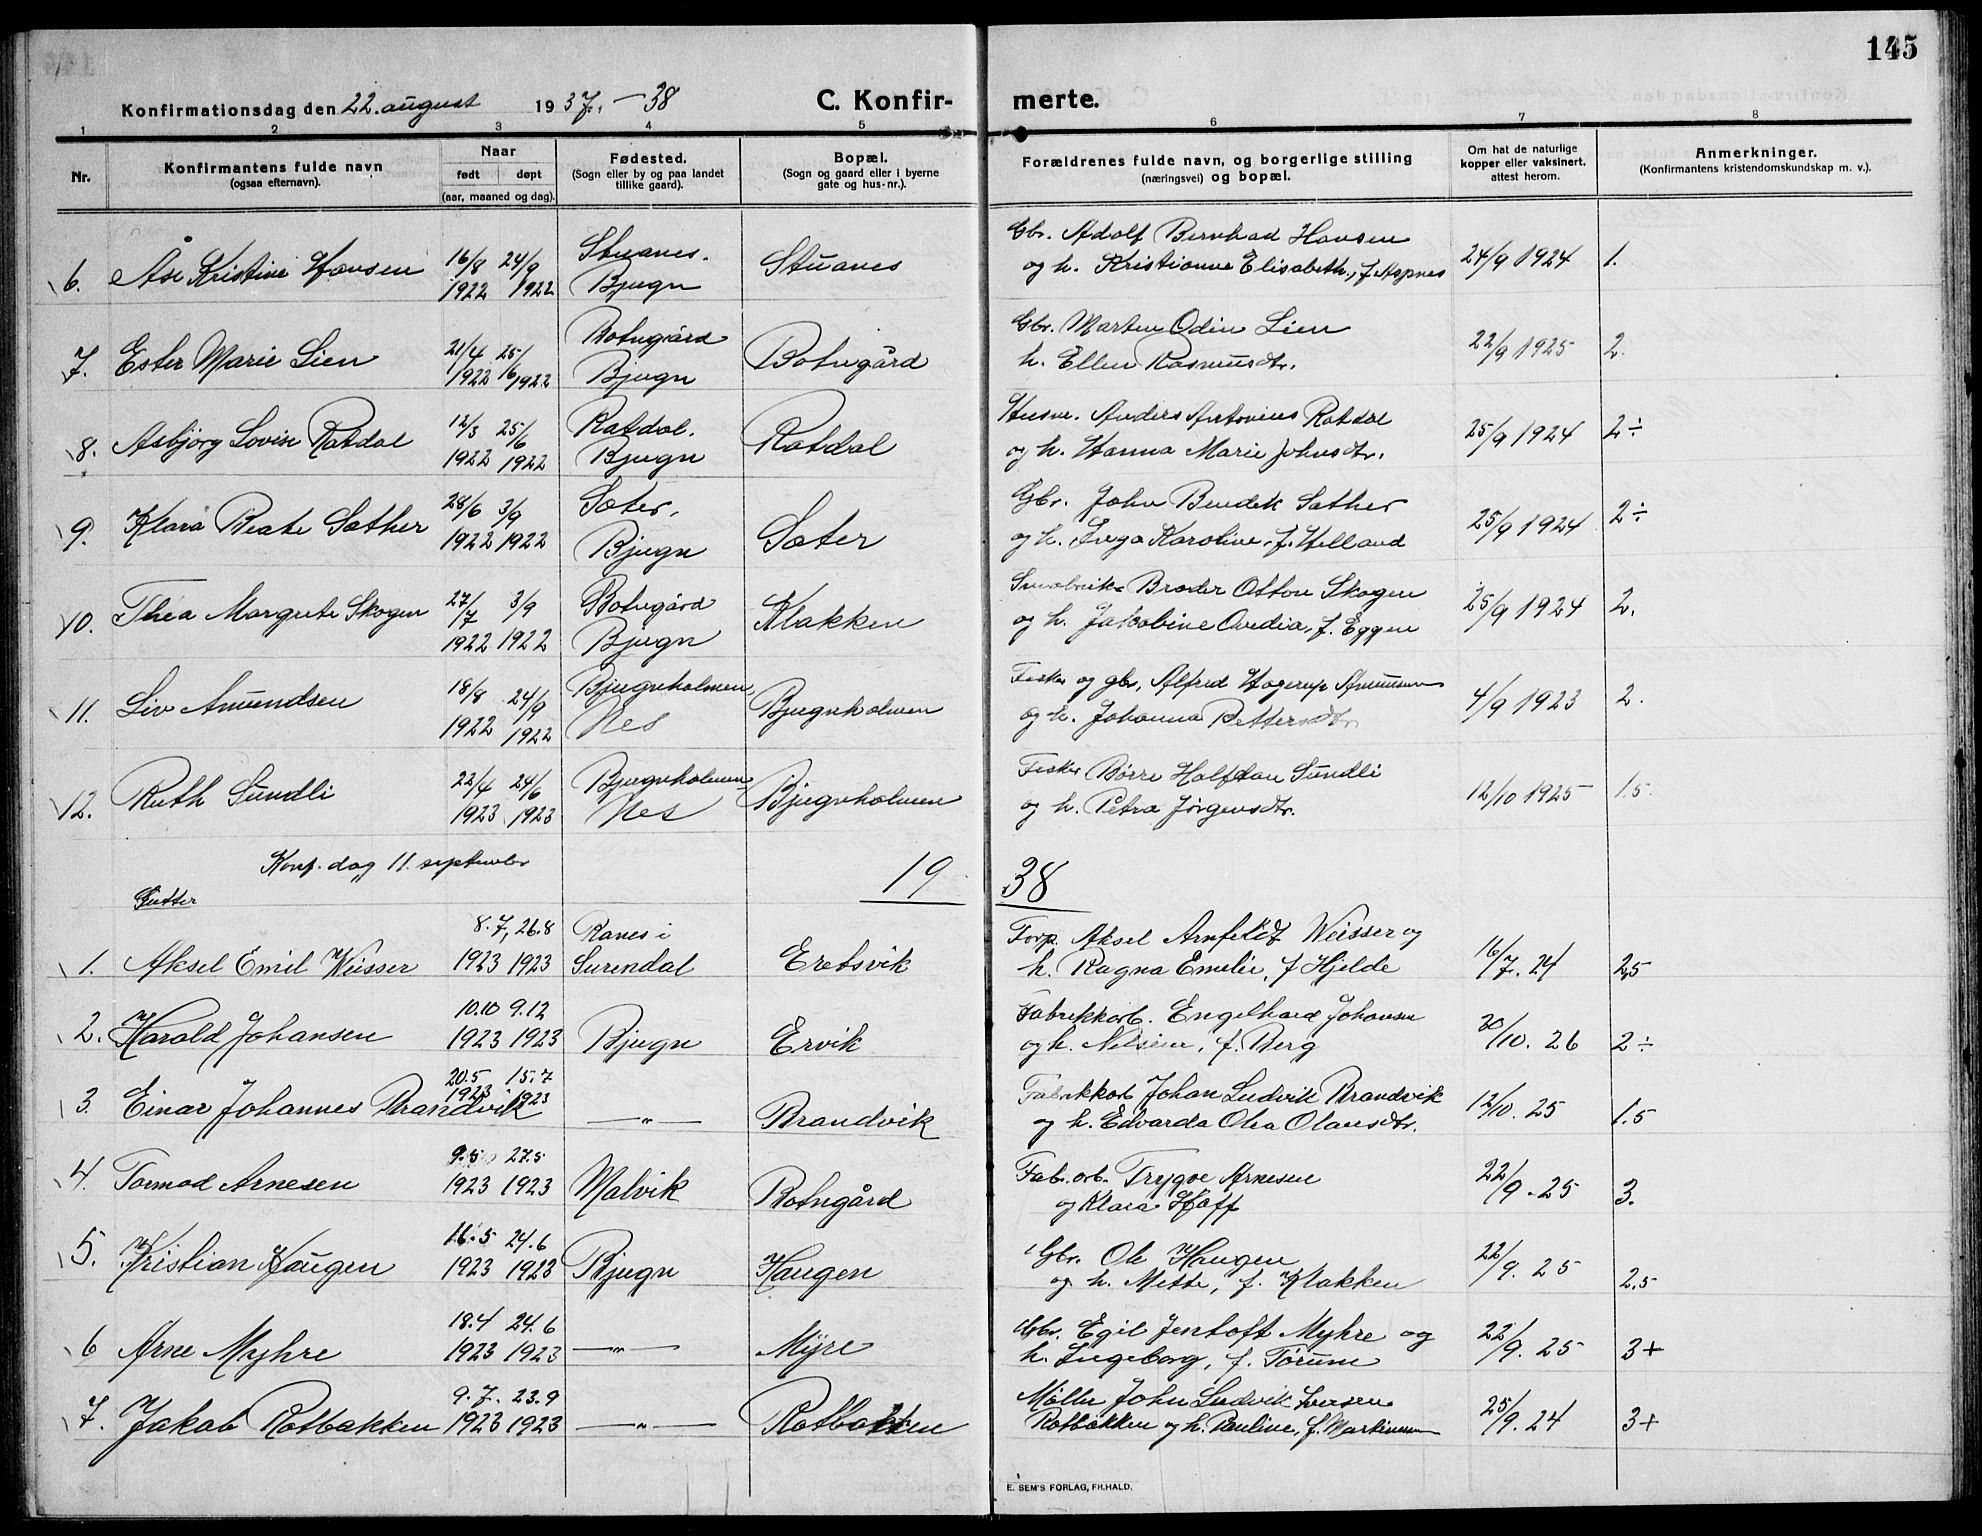 145
Konfirmationsdag den 22. august 1937. – 38 C. Konfir- merte.
1 2 3 4 5 6 7 8
Nr. Konfirmantens fulde navn (ogsaa efternavn). Naar født døpt (aar, maaned og dag). Fødested. (Sogn eller by og paa landet tillike gaard). Bopæl. (Sogn og gaard eller i byerne gate og hus-nr.). Forældrenes fulde navn, og borgerlige stilling (næringsvei) og bopæl. Om hat de naturlige kopper eller vaksinert, attest herom. Anmerkninger. (Konfirmantens kristendomskundskap m. v.).
16/8 24/9 Stuanes. Gbr. Adolf Bernhad Hansen
6. Åse Kristine Hansen 1922 1922 Bjugn Stuanes og h. Kristianne Elisabeth, f. Aspnes 24/9 1924 1.
21/4 25/ Botngård Gbr. Marten Odin Lien
7. Ester Marie Lien 1922 16 1922 Bjugn Botngård h. Ellen Rasmusdtr. 22/9 1925 2.
12/3 25/6 Ratdal. Husm. Anders Antonius Ratdal
8. Asbjørg Lovise Ratdal 1922 1922 Bjugn Ratdal og h. Hanna Marie Johnsdtr. 25/9 1924 2÷
28/6 3/9 Sæter, Gbr. John Bendik Sæther
9. Klara Beate Sæther 1922 1922 Bjugn Sæter og h. Inga Karoline, f. Helland 25/9 1924 2÷
27/7 3/9 Botngård Småbruk. Broder Otton Skogen
10. Thea Margrete Skogen 1922 1922 Bjugn Klakken og h. Jakobine Ovedia, f. Eggen 25/9 1924 2.
18/8 24/9 Bjugnholmen Fisker og gbr, Alfred Hagerup Amundsen
11. Liv Amundsen 1922 1922 Nes Bjugnholmen og h. Johanna Pettersdtr. 4/9 1923 2.
22/4 24/6 Bjugnholmen Fisker Børre Halfdan Sundli
12. Ruth Sundli 1923 1923 Nes Bjugnholmen og h. Petra Jørgensdtr. 12/10 1925 1.5
Konf. dag 11. september 19 38
Gutter
8.7, 26.8 Ranes i Forp. Aksel Arnfeldt Weisser og
1. Aksel Emil Weisser 1923 1923 Surendal Eretsvik h. Ragna Emelie, f Hjelde 16/7. 24 2,5
10.10 9.12 Fabrikkarb. Engelhard Johansen
2. Harald Johansen 1923 1923 Bjugn Ervik og h. f. Berg 30/10. 26 2÷
20.5 15.7 Fabrikkarb Johan Ludvik Brandvik
3. Einar Johannes Brandvik 1923 1923 —"— Brandvik og h. Edvarda Olea Olausdtr. 12/10. 25 1.5
9.5 27.5 Fab. arb. Trygve Arnesen
4. Tormod Arnesen 1923 1923 Malvik Botngård og Klara Hoff 22/9. 25 3.
16.5 24.6 Gbr. Ole Haugen
5. Kristian Haugen 1923 1923 Bjugn Haugen og h. Mette, f. Klakken 22/9. 25 2.5
18.4 24.6 Gbr. Egil Jentoft Myhre og
6 Arne Myhre 1923 1923 —"— Myre h. Ingeborg, f. Tørum 22/9. 25 3+
9.7. 23.9 Møller John Ludvik Iversen
7. Jakob Rotbakken 1923 1923 —"— Rotbakken Rotbakken og h. Pauline, f. Martinsen 25/9. 24 3+
E. SEM'S FORLAG, FR.HALD.